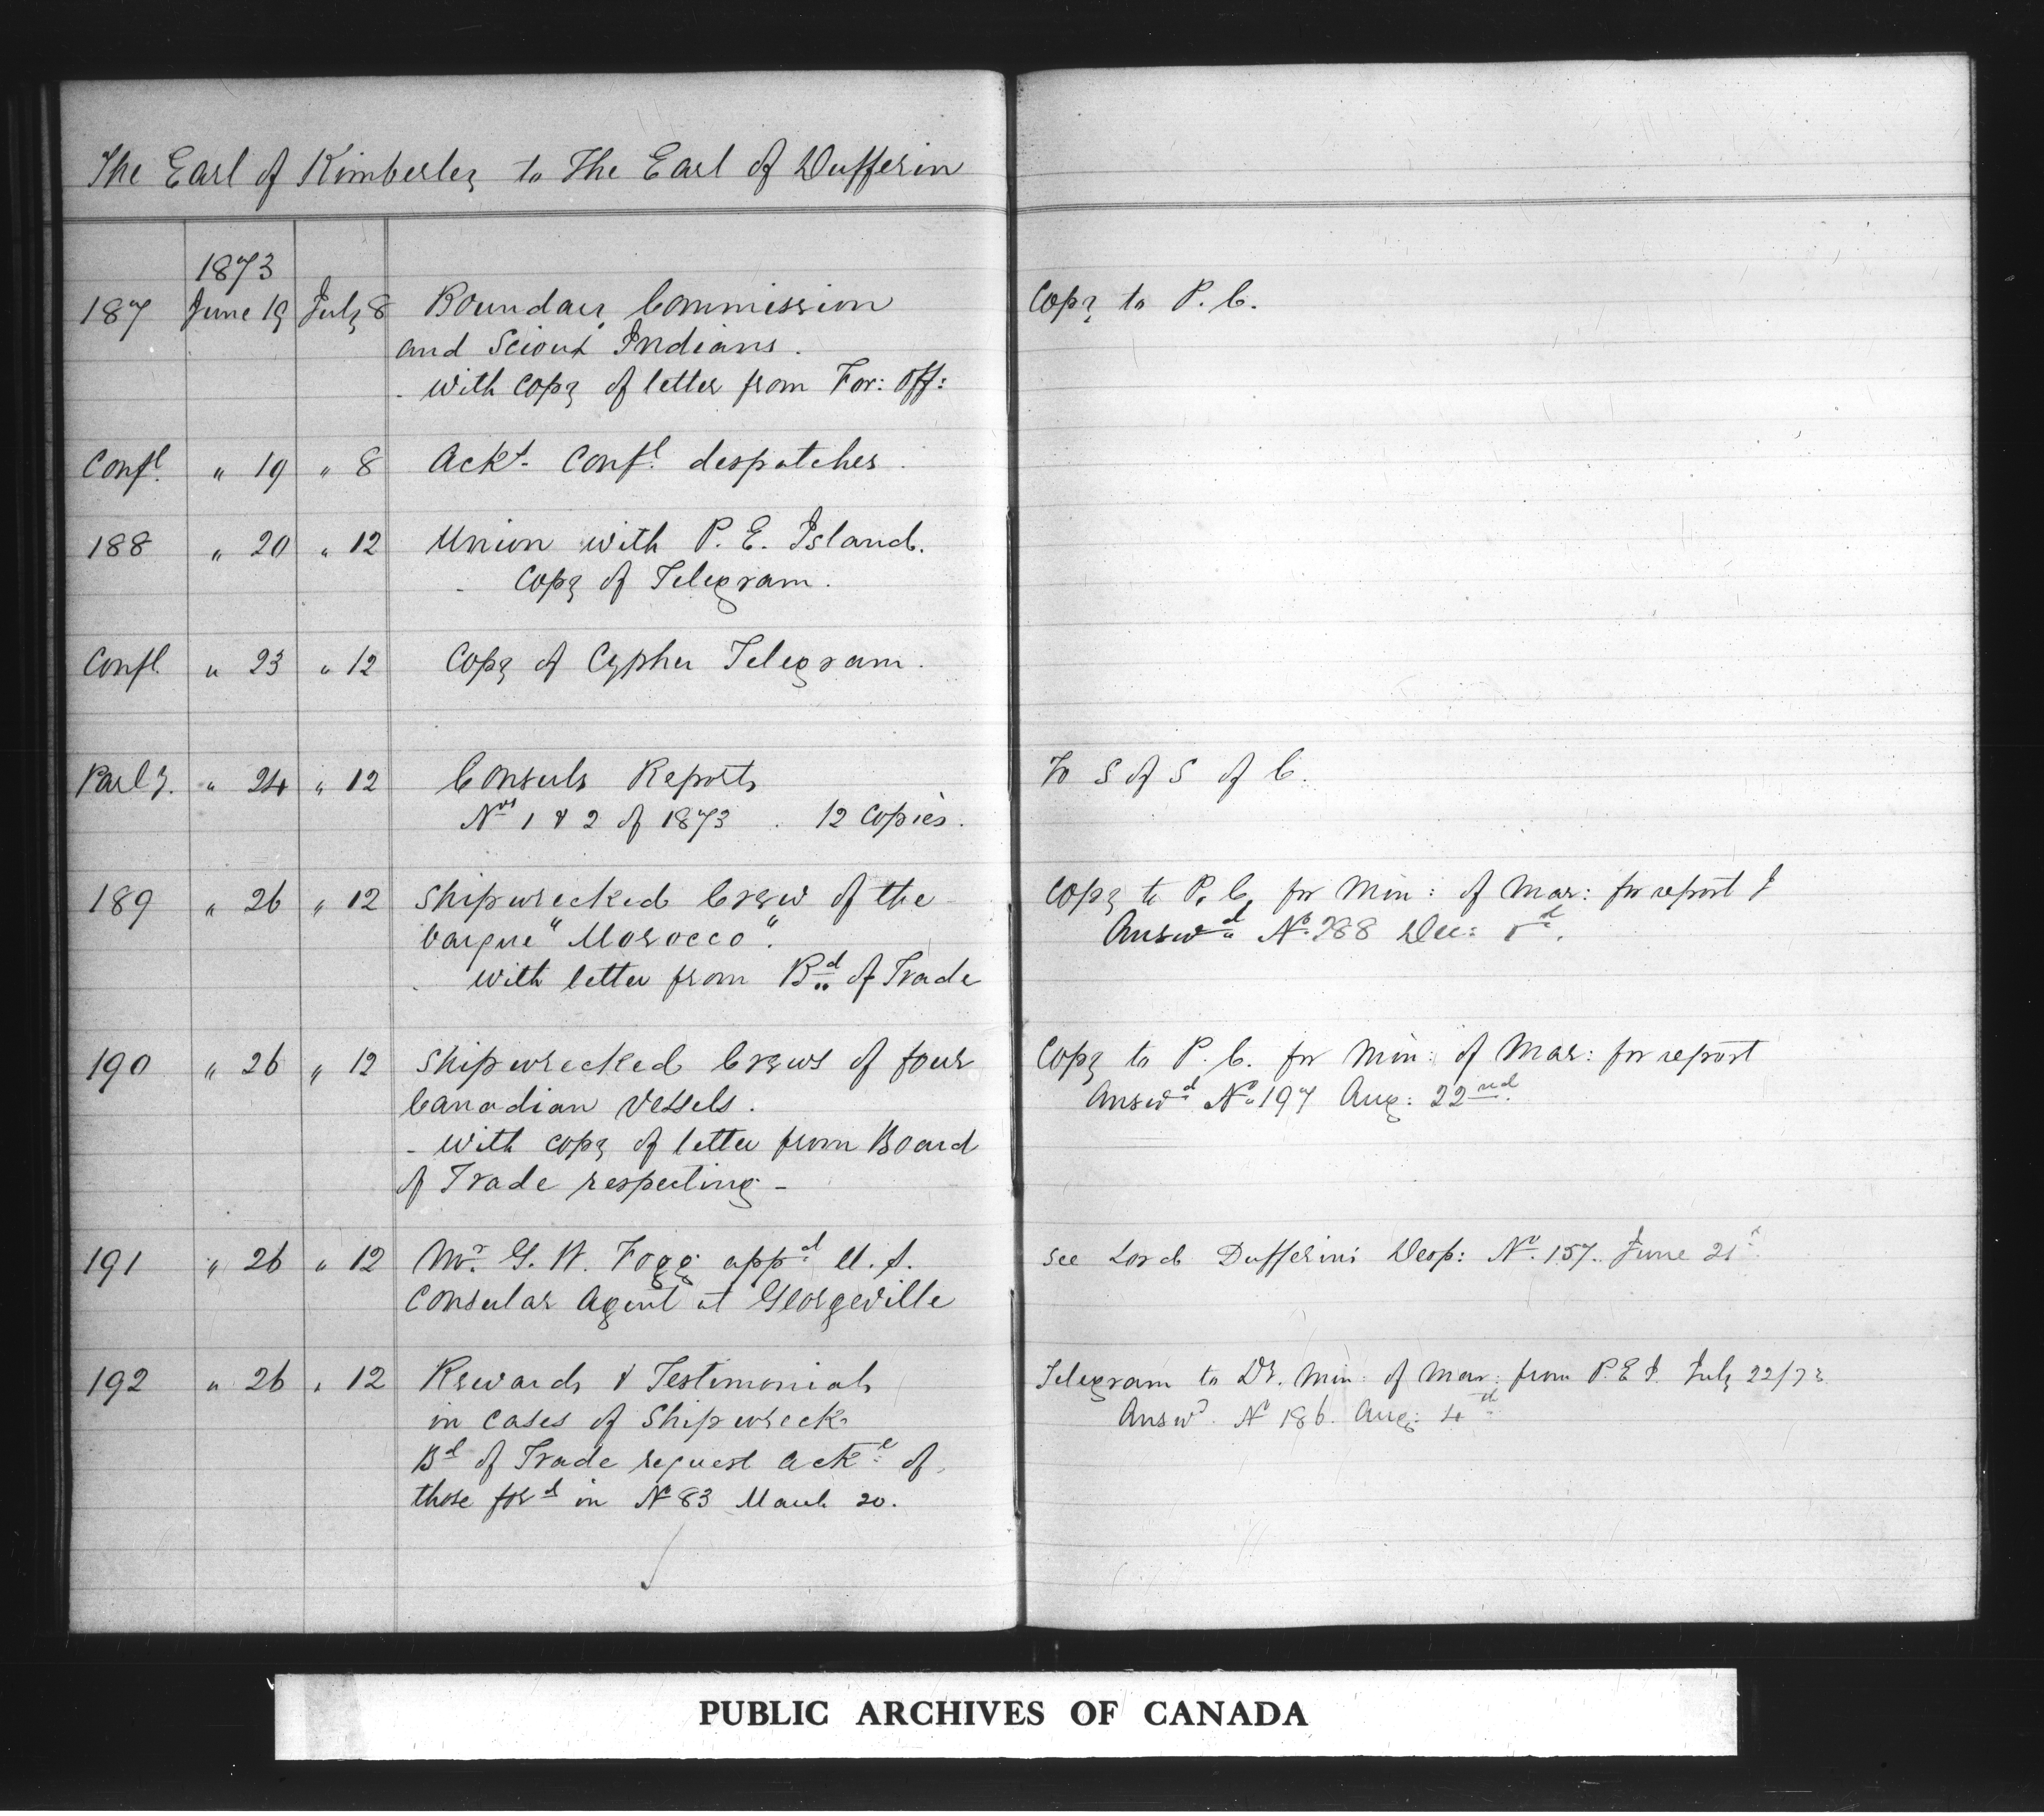 The Earl of Kimberley to The Earl of Dufferin
1873
187 June 19 July 8 Boundary Commission Copy to P. C.
and Scioux Indians.
- with copy of letter from For: Off:
Confl. " 19 " 8 Ackt. Confl. despatches.
188 " 20 " 12 Union with P. E. Island.
- Copy of Telegram.
Confl. " 23 " 12 Copy of Cypher Telegram.
Parly. " 24 " 12 Consuls Reports To S of S of C.
Nos 1 & 2 of 1873 . 12 Copies.
189 " 26 " 12 Shipwrecked Crew of the Copy to P. C. for Min: of Mar: for report
barque "Morocco". Answd No. 288 Dec:
- with letter from Bd of Trade
190 " 26 " 12 Shipwrecked Crews of four Copy to P. C. for Min: of Mar: for report
Canadian Vessels. Answd No. 197 Aug: 22nd.
- with copy of letter from Board
of Trade respecting -
191 " 26 " 12 Mr. G. W. Fogg appd U.S. See Lord Dufferin's Desp: No. 157. June 21st
Consular Agent at Georgeville
192 " 26 " 12 Rewards & Testimonials Telegram to Dr. Min: of Mar: from P.E.I. July 22/73
in cases of Shipwreck Answd. No 186. Aug: 4th
Bd of Trade request Ackt of
those ford in No 83 March 20.
PUBLIC ARCHIVES OF CANADA